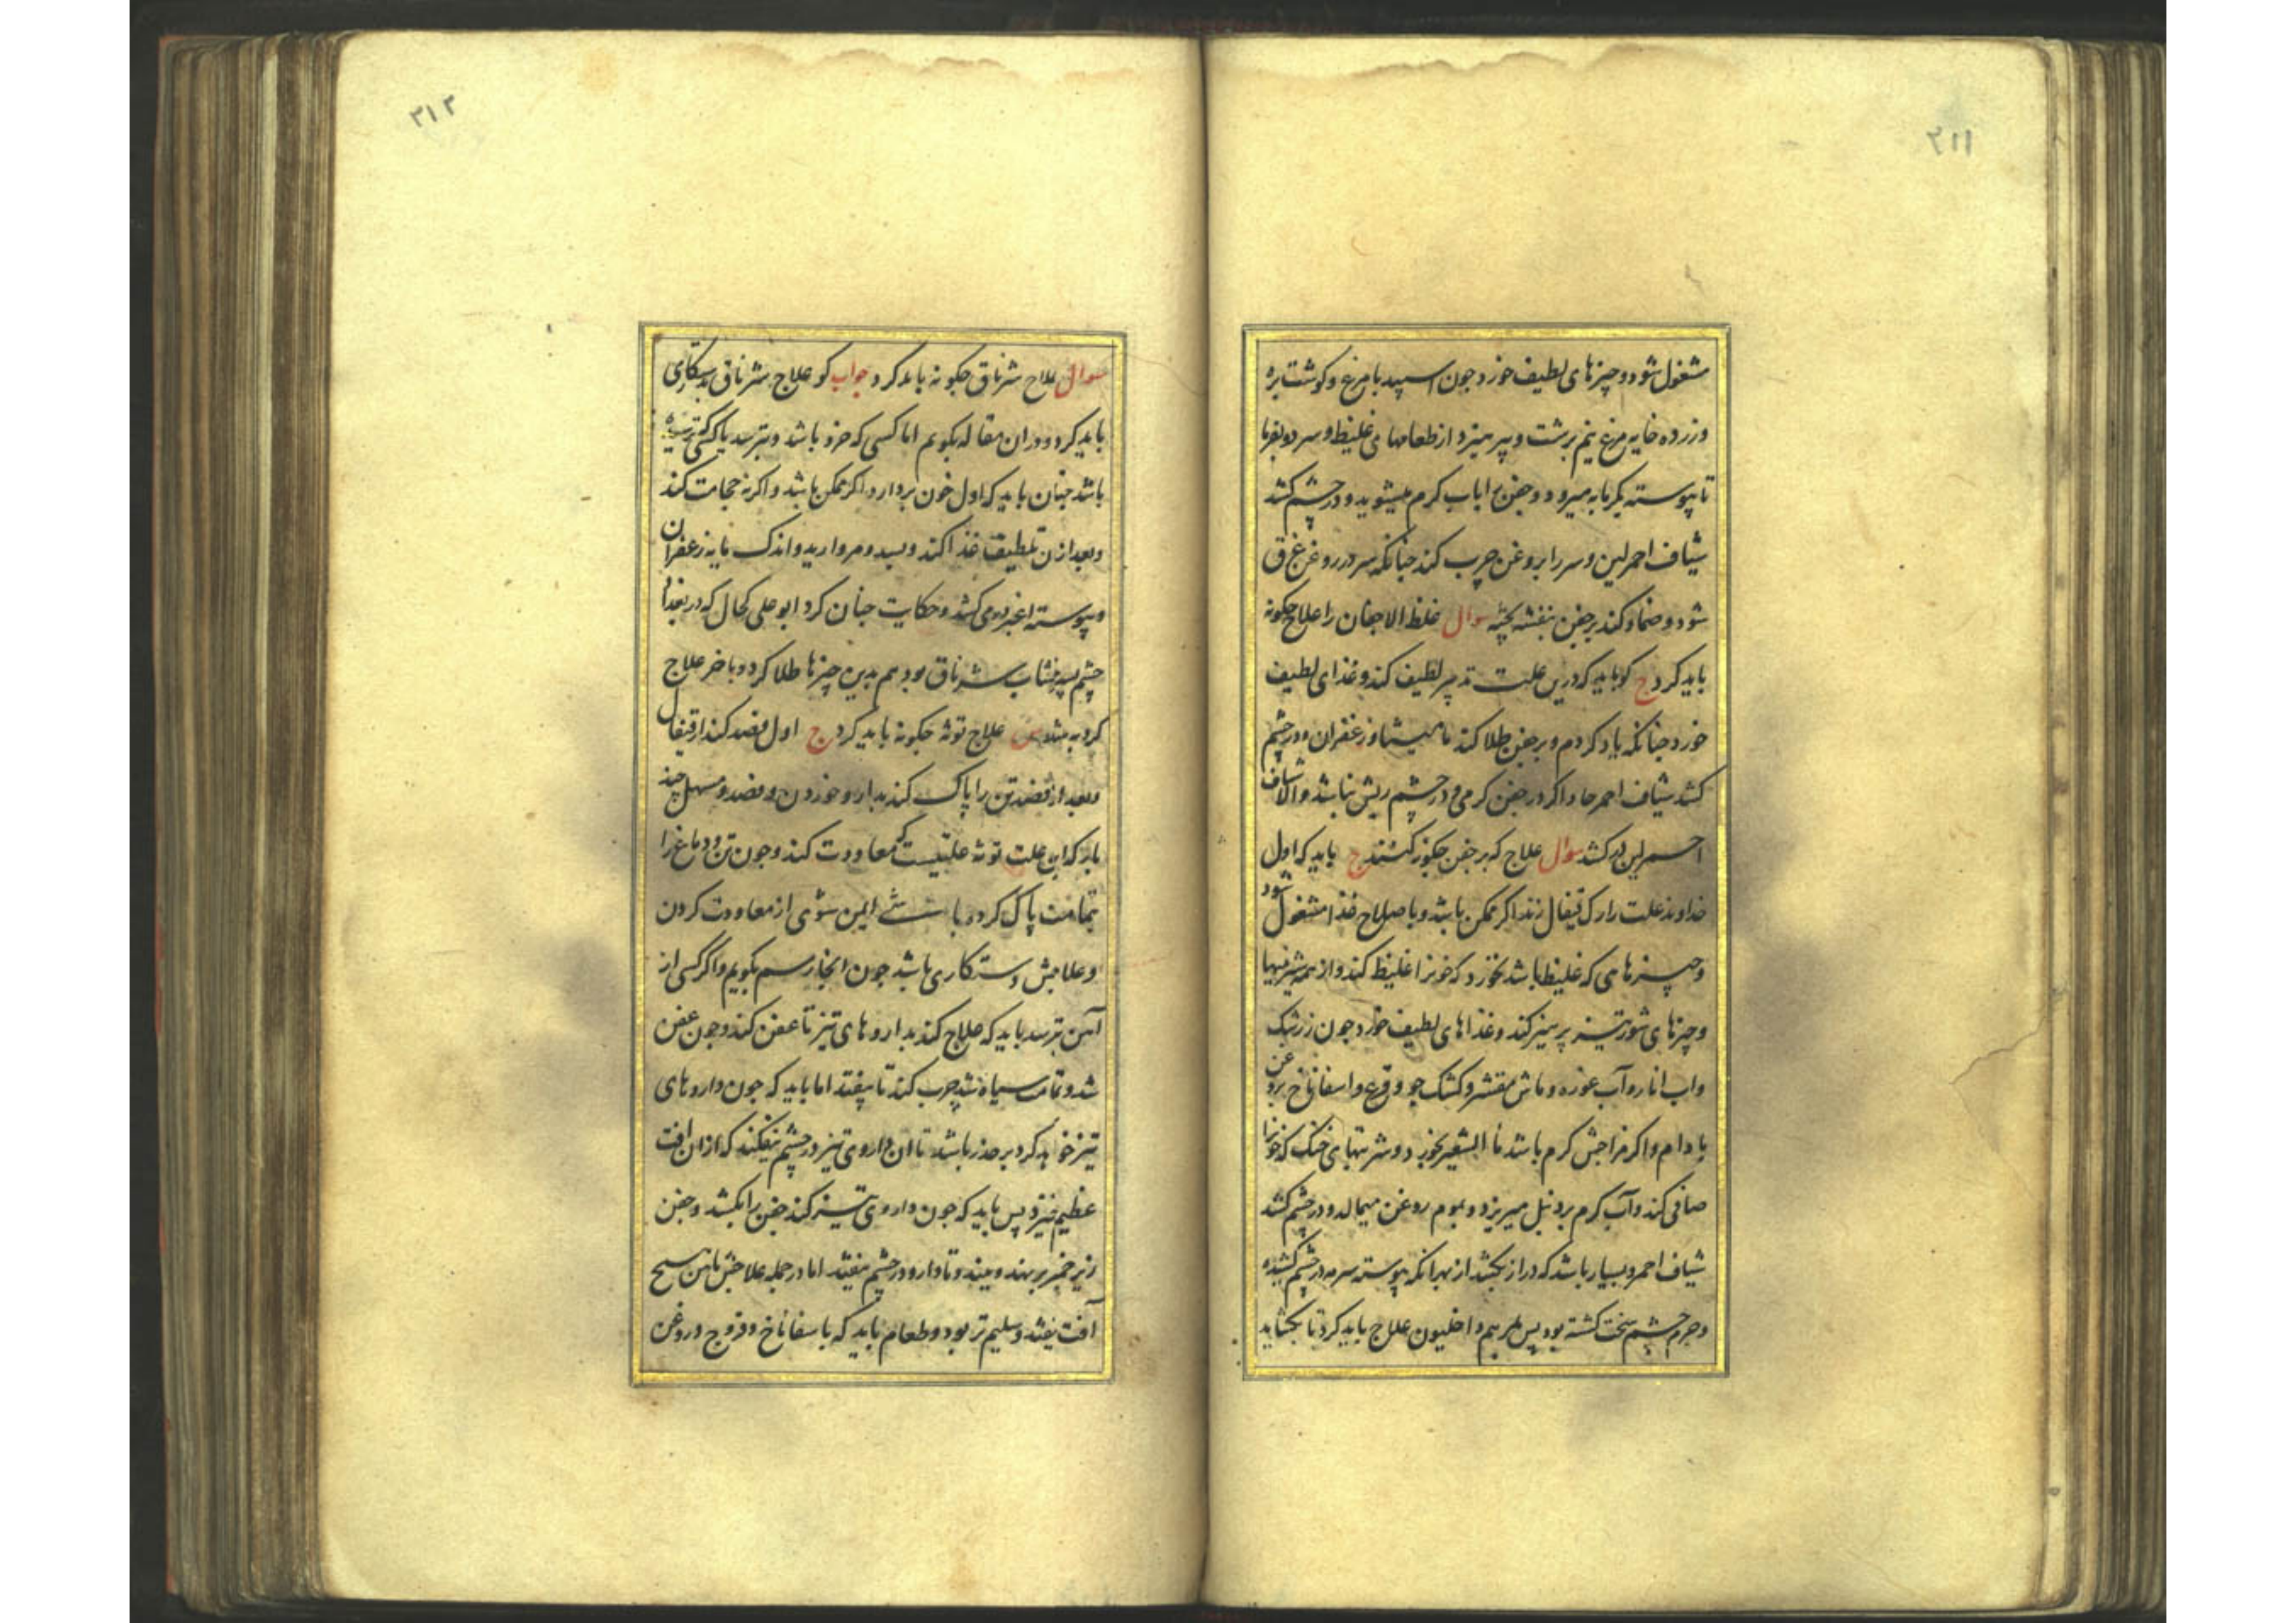 ۲۱۱
مشغول شود و چیزهای لطیف خورد چون اسپید با مرغ و کوشت بره
و زرده خایه مرغ نیم برشت و پرهیزد از طعامهای غلیظ و سرد و بفرما
تا پیوسته بکرمابه میرود و جفن را باب کرم میشوید و در چشم کشد
شیاف احمر لین و سر را بروغن چرب کند چنانکه سر در روغن غرق
شود و ضماد کند بر جفن بنفشه پخته سوال غلظ الاجفان را علاج چکونه
باید کرد ج کو باید که درین علت تدبیر لطیف کند و غذای لطیف
خورد چنانکه یاد کردم و بر جفن طلا کند مامیثا و زعفران و در چشم
کشد شیاف احمر حاد اکر در جفن کرمی و در چشم ریش نباشد و الا شیاف
احمر لین در کشد سوال علاج که بر جفن چکونه کنند ج باید که اول
خداوند علت را رک قیفال زند اکر ممکن باشد و باصلاح غذا مشغول شود
و چیزهای که غلیظ باشد نخورد که خونرا غلیظ کند و از همه شیرینیها
و چیزهای شور و تیز پرهیز کند و غذاهای لطیف خورد چون زرشک
و اب انار و آب غوره و ماش مقشر و کشک جو و قرع و اسفاناخ بروغن
بادام و اکر مزاجش کرم باشد ما الشعیر خورد و شربتهای خنک که خونرا
صافی کند و آب کرم بر دنبل میریزد و بموم روغن میمالد و در چشم کشد
شیاف احمر و بسیار باشد که دراز بکشد از بهر انکه پیوسته سرمه در چشم کشیده
و جرم چشم سخت کشته بود پس بمرهم داخلیون علاج باید کرد تا بکشاید
۲۱۲
سوال علاج شرناق چکونه باید کرد جواب کو علاج شرناق بدستکاری
باید کرد و دران مقاله بکویم اما کسی که خرد باشد و بترسد یا کسی که ترسیده
باشد چنان باید که اول خون بردارد اکر ممکن باشد و اکر نه حجامت کند
و بعد ازن تلطیف غذا کند و بسد و مروارید و اندک مایه زعفران
و پیوسته اغبر می کشد و حکایت چنان کرد ابو علی کحال که در بغداد
چشم پسر شرناق بود هم بدین چیزها طلا کرد و باخر علاج
کرد به شد س علاج توثه چکونه باید کرد ج اول فصد کند از قیفال
و بعد از فصد تن را پاک کند بدارو خوردن و فصد و مسهل چند
بار که این علت توثه علتیست که معاودت کند و چون تن و دماغ را
بتمامت پاک کرده باشی ایمن شوی از معاودت کردن
و علاجش دستکاری باشد چون انجا رسم بکویم و اکر کسی از
آهن بترسد باید که علاج کند بداروهای تیز تا عفن کند و چون عفن
شد و تمامت سیاه شد چرب کند تا بیفتد اما باید که چون داروهای
تیز خواهد کرد بر حذر باشد تا ان داروی تیز در چشم نیفکند که ازان افت
عظیم خیزد پس باید که چون داروی تیز کند جفن را بکشد و جفن
زیر خمیر بر نهد و ببندد تا دارو در چشم نیفتد اما در جمله علاجش باهن هیچ
آفت نیفتد و سلیم تر بود و طعام باید که با سفاناخ و فروج و روغن